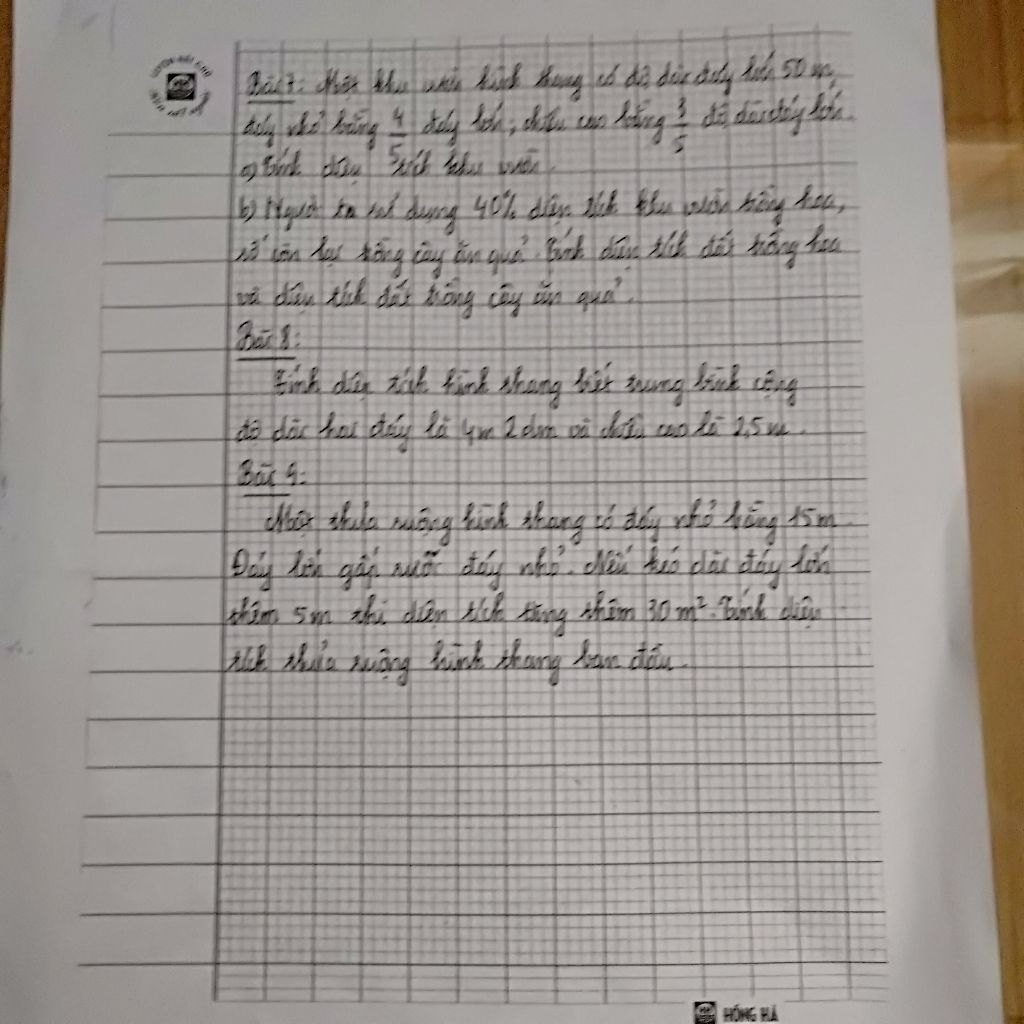 Bài 7: Một khu vườn hình thang có độ dài đáy lớn 50 m,
đáy nhỏ bằng 4/5 đáy lớn, chiều cao bằng 3/5 độ dài đáy lớn.
a) Tính diện tích khu vườn.
b) Người ta sử dụng 40% diện tích khu vườn trồng hoa,
số còn lại trồng cây ăn quả. Tính diện tích đất trồng hoa
và diện tích đất trồng cây ăn quả.
Bài 8:
Tính diện tích hình thang biết trung bình cộng
độ dài hai đáy là 4m 2dm và chiều cao là 2,5 m.
Bài 9:
Một thửa ruộng hình thang có đáy nhỏ bằng 15m.
Đáy lớn gấp rưỡi đáy nhỏ. Nếu kéo dài đáy lớn
thêm 5m thì diện tích tăng thêm 30 m². Tính diện
tích thửa ruộng hình thang ban đầu.
HỒNG HÀ